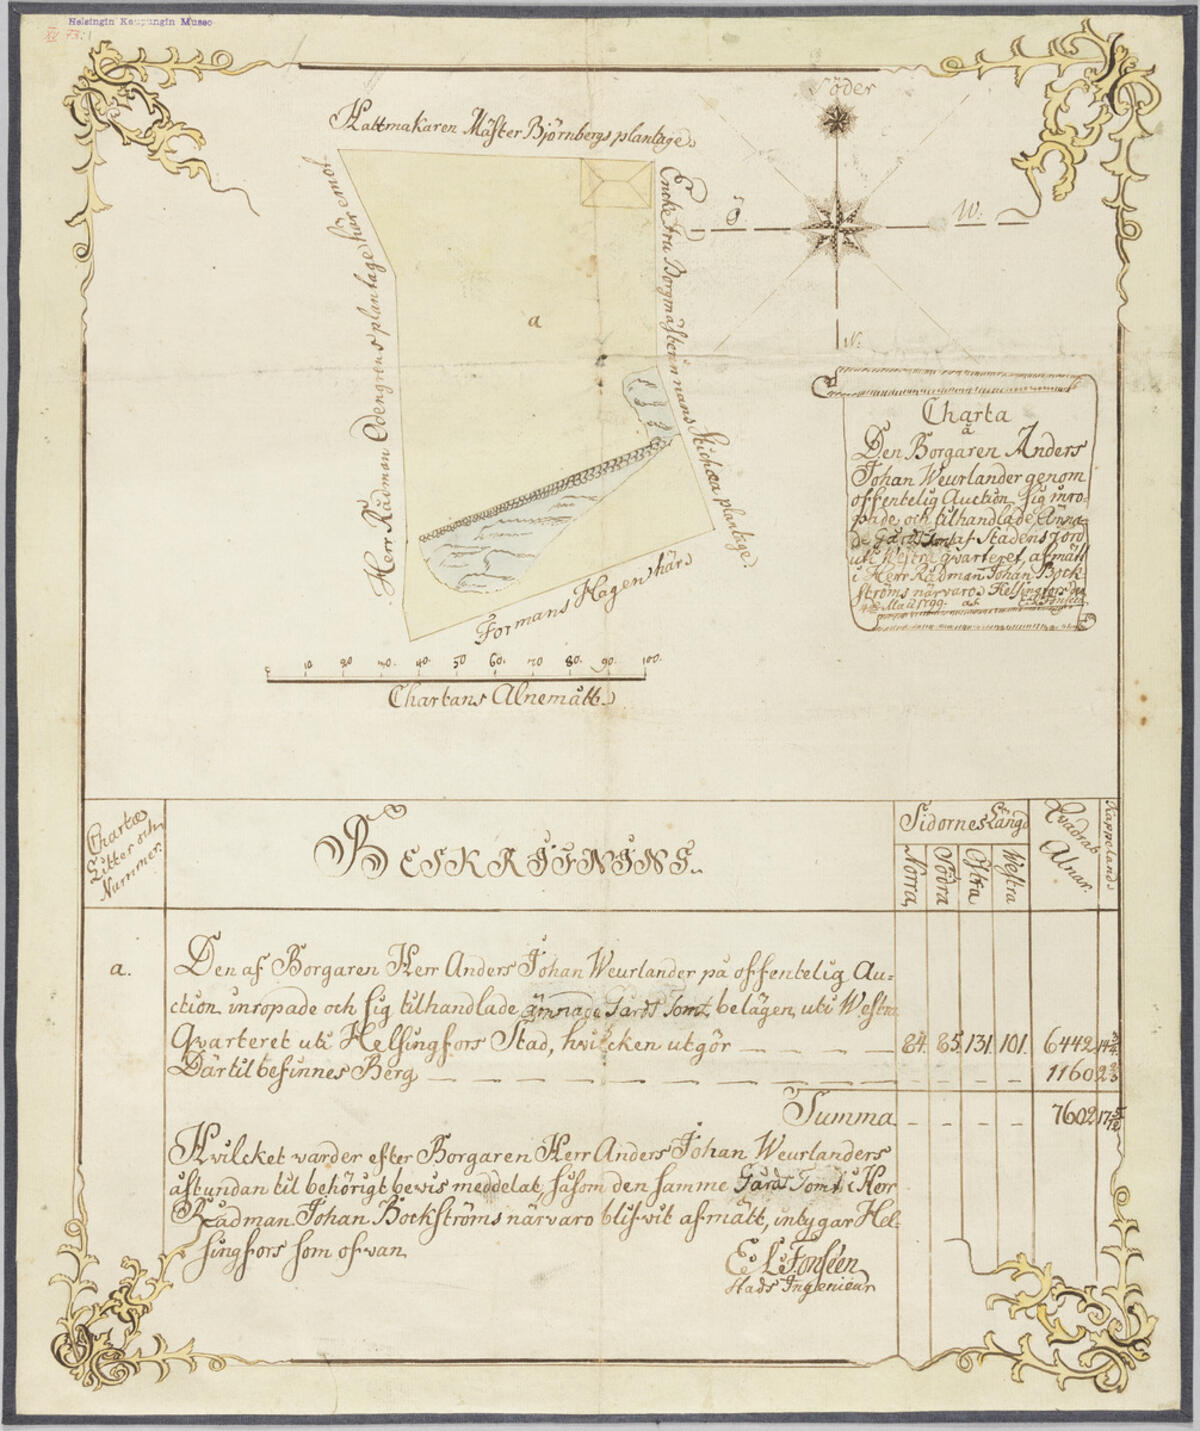 Helsingin Kaupungin Museo
XV 73:1
Söder
Ö
W:
N:
Hattmakaren Mäster Björnbergs plantage
Herr Rådman Odengrens plantage här emot
Encke Fru Borgmästerinnans plantage
a
Formans Hagen härs
10 20 30. 40. 50 60. 70 80. 90. 100.
Chartans Alnemått
Charta
å
Den Borgaren Anders
Johan Weurlander genom
offentelig Auction sig inro-
pade och tilhandlade Ämna-
de Gårds Tomt af Stadens Jord
uti Westra Qvarteret, afmätt
i Herr Rådman Johan Bock-
ströms närvaro Helsingfors den
Maii 1799. af
Chartæ
Litter och
Nummer.
BESKRIFNING
Sidornes Längd
Norra
Södra
Östra
Westra
Qvadrat
Alnar.
Kappelands
a.
Den af Borgaren Herr Anders Johan Weurlander på offentelig Au=
ction inropade och sig tilhandlade ämnade Gårds Tomt belägen uti Westra
Qvarteret uti Helsingfors Stad, hvilcken utgör 84. 85. 131. 101. 6442
Därtil befinnes Berg 1160
Summa 7602
Hvilcket varder efter Borgaren Herr Anders Johan Weurlanders
åstundan til behörigt bevis meddelat, såsom den samme Gårds Tomt i Herr
Rådman Johan Bockströms närvaro blifvit afmätt, intygar Hel-
singfors som ofvan
E. L. Fonseen
Stads Ingenieur